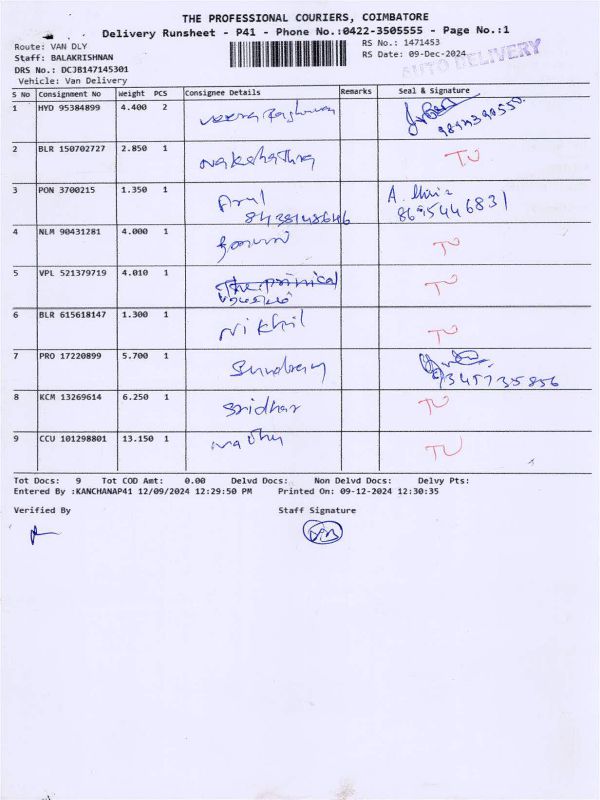 THE PROFESSIONAL COURIERS, COIMBATORE
Delivery Runsheet - P41 - Phone No.:0422-3505555 - Page No.:1
Route: VAN DLY
Staff: BALAKRISHNAN
DRS No.: DCJB147145301
Vehicle: Van Delivery
RS No.: 1471453
RS Date: 09-Dec-2024
AUTO DELIVERY
S No Consignment No Weight PCS Consignee Details Remarks Seal & Signature
1 HYD 95384899 4.400 2
2 BLR 150702727 2.850 1 Nakshathra TU
3 PON 3700215 1.350 1 Arul 8695446831
4 NLM 90431281 4.000 1 TU
5 VPL 521379719 4.010 1 TU
6 BLR 615618147 1.300 1 Nikhil TU
7 PRO 17220899 5.700 1 Sundaram
8 KCM 13269614 6.250 1 Sridhar TU
9 CCU 101298801 13.150 1 Madhu TU
Tot Docs: 9 Tot COD Amt: 0.00 Delvd Docs: Non Delvd Docs: Delvy Pts:
Entered By :KANCHANAP41 12/09/2024 12:29:50 PM Printed On: 09-12-2024 12:30:35
Verified By Staff Signature